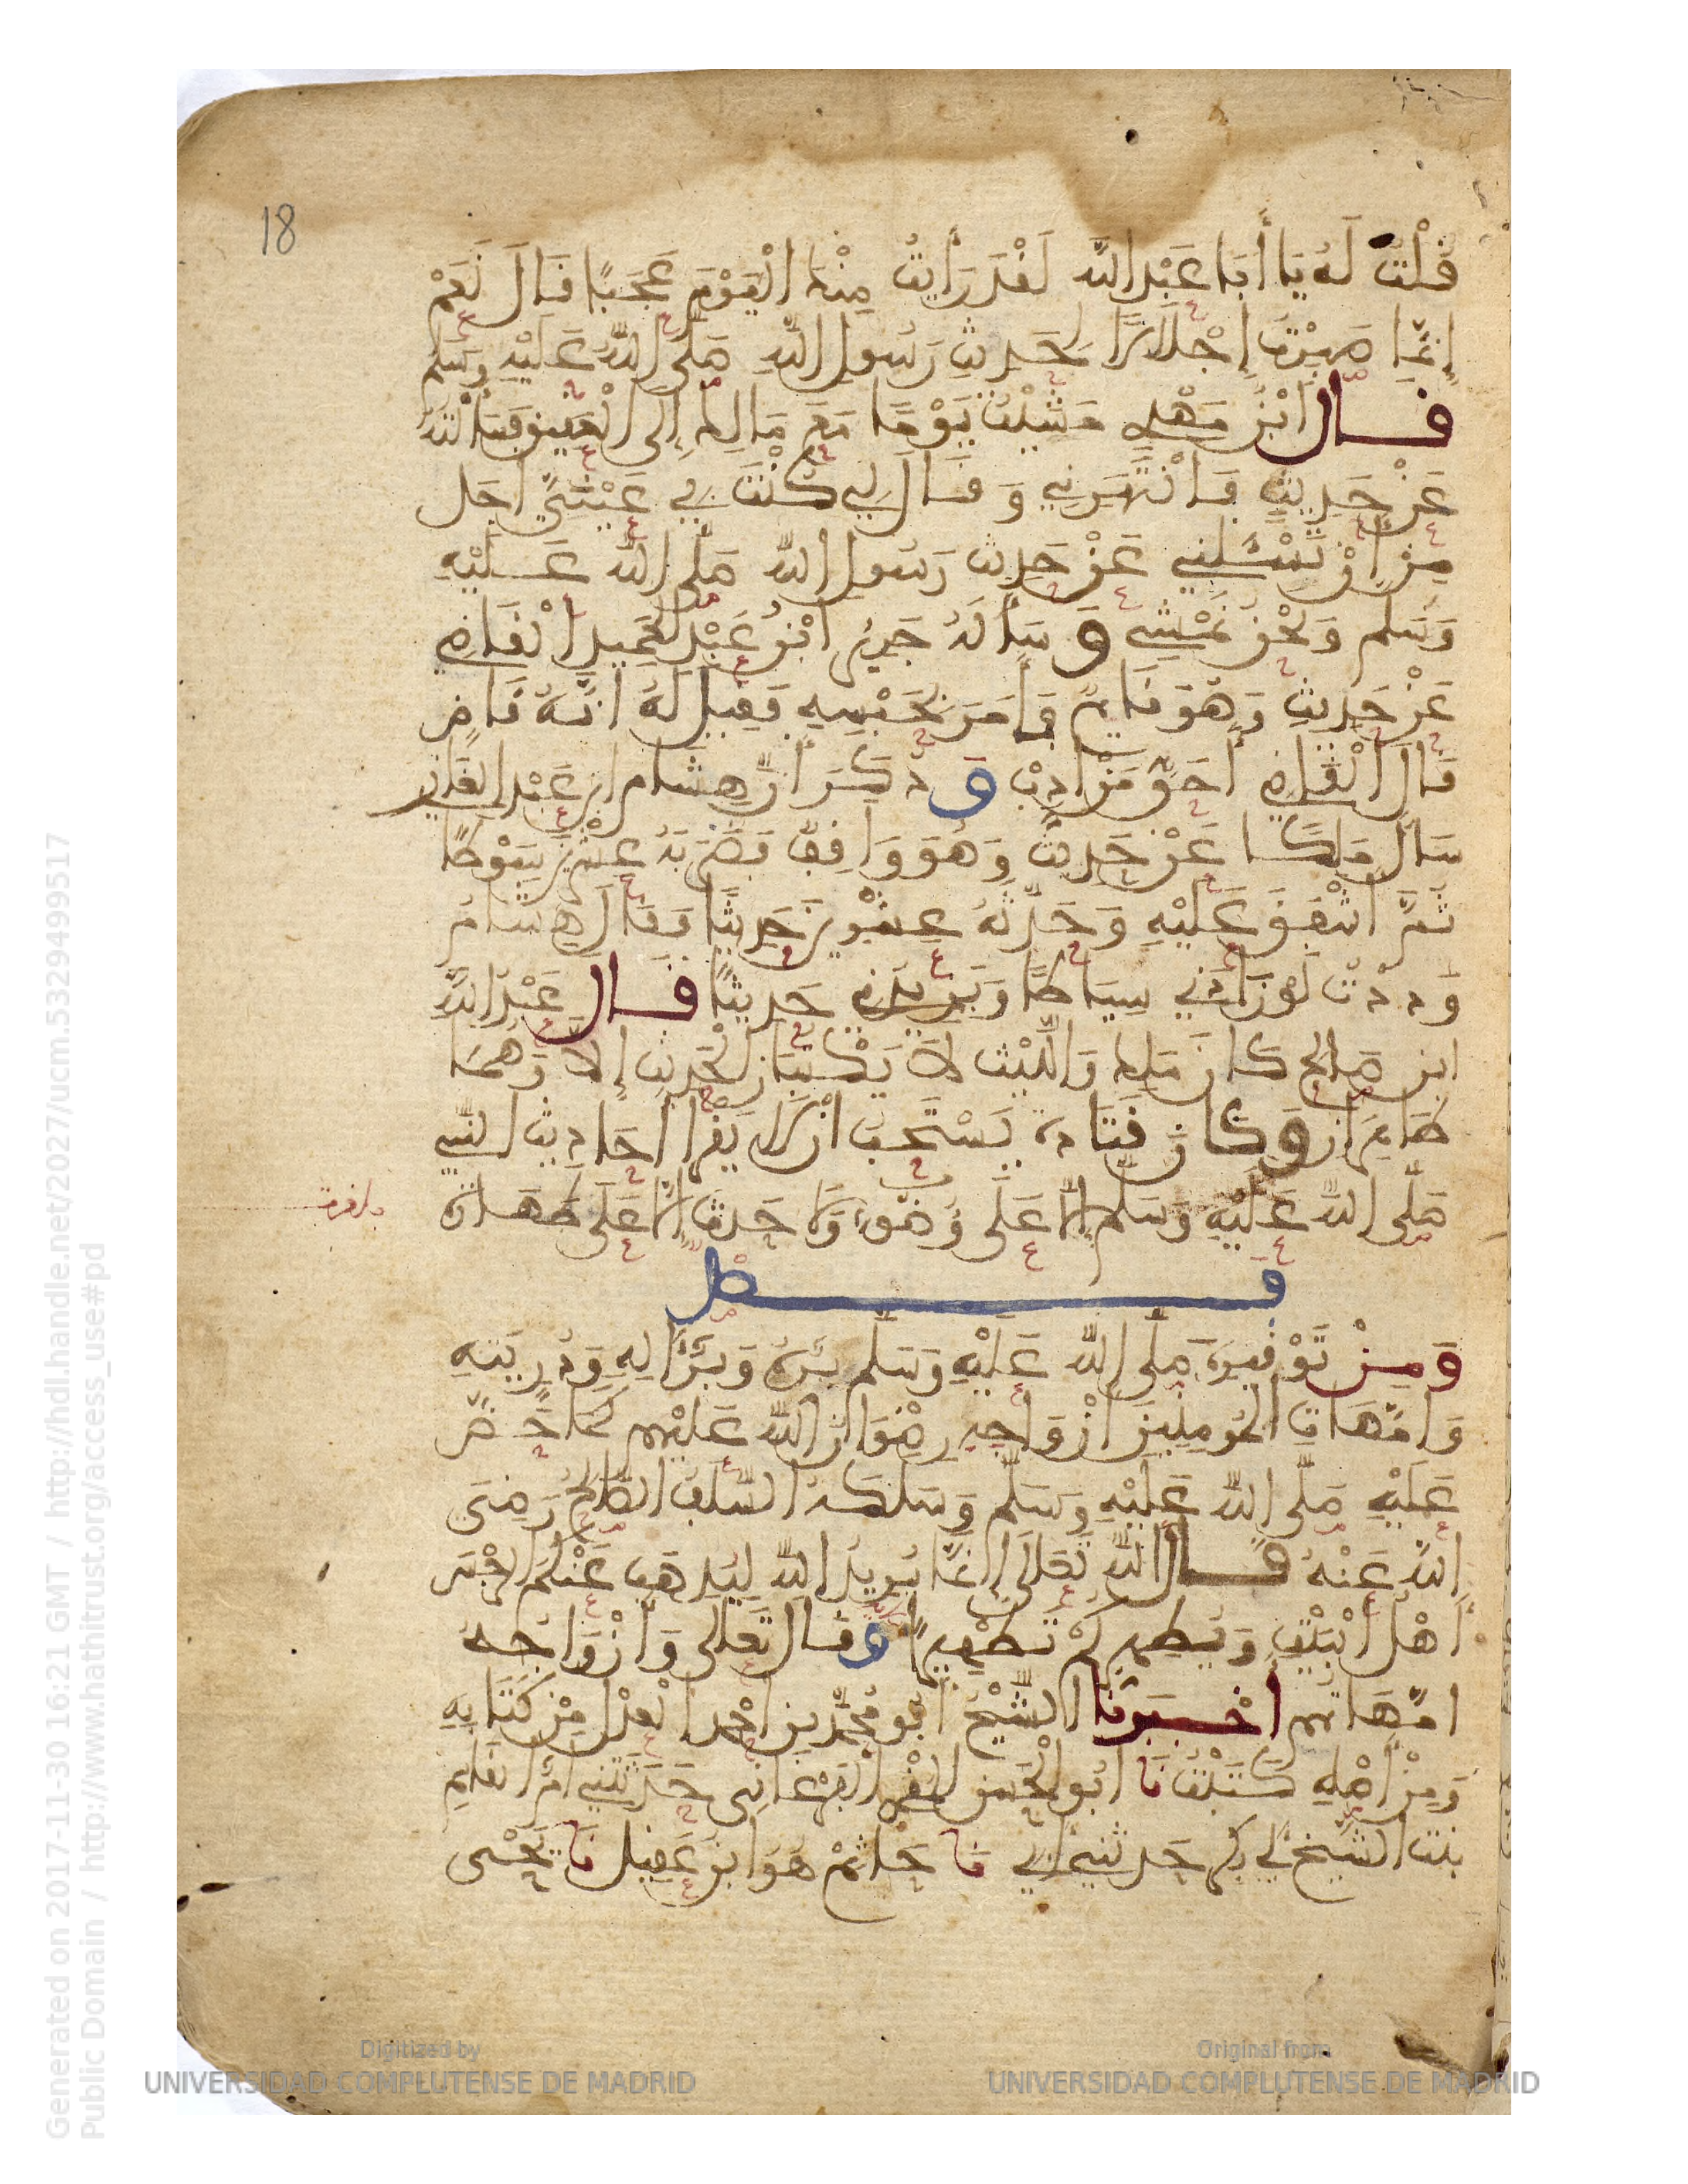 18
قُلْتُ لَهُ يَا أَبَا عَبْدِ اللَّهِ لَقَدْ رَأَيْتُ مِنْكَ الْيَوْمَ عَجَبًا قَالَ نَعَمْ
إِنَّمَا صَبَرْتُ إِجْلَالًا لِحَدِيثِ رَسُولِ اللَّهِ صَلَّى اللَّهُ عَلَيْهِ وَسَلَّمَ
قال ابْنُ مَهْدِي مَشَيْتُ يَوْمًا مَعَ مَالِكٍ إِلَى الْعَقِيقِ فَسَأَلْتُهُ
عَنْ حَدِيثٍ فَانْتَهَرَنِي وَقَالَ لِي كُنْتَ فِي عَيْنِي أَجَلَّ
مِنْ أَنْ تَسْئَلَنِي عَنْ حَدِيثِ رَسُولِ اللَّهِ صَلَّى اللَّهُ عَلَيْهِ
وَسَلَّمَ وَنَحْنُ نَمْشِي وَسَأَلَهُ جَرِيرُ ابْنُ عَبْدِ الْحَمِيدِ الْقَاضِي
عَنْ حَدِيثٍ وَهُوَ قَائِمٌ فَأَمَرَ بِحَبْسِهِ فَقِيلَ لَهُ انَّهُ قَاضٍ
قَالَ الْقَاضِي أَحَقُّ مَنْ ادِّبَ وَذُكِرَ أَنَّ هِشَام ابن عَبْدِ الغَازِي
سَأَلَ مَالِكًا عَنْ حَدِيثٍ وَهُوَ وَاقِفٌ فَضَرَبَهُ عِشْرِينَ سَوْطًا
ثُمَّ اشْفَقَ عَلَيْهِ وَحَدَّثَهُ عِشْرِينَ حَدِيثًا فَقَالَ هِشَامُ
وَدِدْتُ لَوْ زَادَنِي سِيَاطًا وَيَزِيدُنِي حَدِيثًا قال عَبْدُ اللَّهِ
ابن صَالِح كَانَ مَالِك وَاللَّيْث لَا يَكْتُبَانِ الْحَدِيثَ إِلَّا وَهُمَا
طَاهِرَانِ وَكَانَ قَتَادَة يَسْتَحِبُّ انْ لَا يَقْرَأ احَادِيثَ النبي
صَلَّى اللَّهُ عَلَيْهِ وَسَلَّمَ إِلَّا عَلَى وُضُوءٍ وَلَا حَدَّثَ إِلَّا عَلَى طَهَارَة
فصل
وَمِنْ تَوْقِيرِهِ صَلَّى اللَّهُ عَلَيْهِ وَسَلَّمَ بِرُّهُ وَبِرُّ آلِهِ وَذُرِّيَّتِهِ
وَامَّهَاتِ الْمُومِنِينَ ازْوَاجِهِ رِضْوَانُ اللَّهِ عَلَيْهِم كَمَا حَضَّ
عَلَيْهِ صَلَّى اللَّهُ عَلَيْهِ وَسَلَّمَ وَسَلَكَهُ السَّلَفُ الصَّالِحُ رَضِيَ
اللَّهُ عَنْهُ قال اللَّهُ تَعَالَى إِنَّمَا يُرِيدُ اللَّهُ لِيُذْهِبَ عَنْكُمُ الرِّجْسَ
أَهْلَ الْبَيْتِ وَيُطَهِّرَكُمْ تَطْهِيرًا وقال تَعَالَى وَأَزْوَاجُهُ
امَّهَاتُهُم أَخْبَرَنَا الشَّيْخُ أَبُو مُحَمَّد بن احْمَد الْعَدْل مِنْ كِتَابِهِ
وَمِنْ أَصْلِهِ كَتَبْتُ نَا أَبُو الْحَسَن الْمُقْرِي الْفَرْغَانِي حَدَّثَتْنِي أُمُّ الْقَاسِمِ
بنت الشَّيْخ أَبِي بَكْر حَدَّثَنِي أَبِي نَا حَاتِمٌ هُوَ ابْنُ عَقِيلٍ نَا يَحْيَى